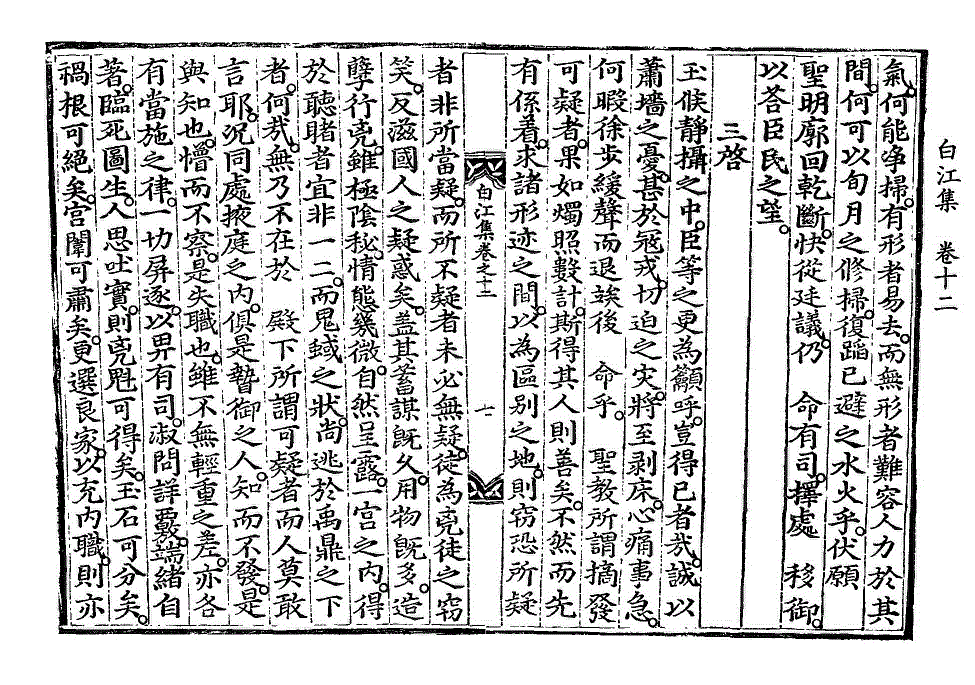 白江集 卷十二
氣。何能淨掃。有形者易去。而無形者難容人力於其
間。何可以旬月之修掃。復蹈已避之水火乎。伏願
聖明廓回乾斷。快從廷議。仍 命有司。擇處 移御。
以答臣民之望。
三啓
玉候靜攝之中。臣等之更為籲呼。豈得已者哉。誠以
蕭墻之憂。甚於寇戎。切迫之灾。將至剥床。心痛事急。
何暇徐步緩聲而退竢後 命乎。 聖教所謂摘發
可疑者。果如燭照數計。斯得其人則善矣。不然而先
有係着。求諸形迹之間。以為區別之地。則窃恐所疑
白江集卷之十二
七
者非所當疑。而所不疑者未必無疑。徒為兇徒之窃
笑。反滋國人之疑惑矣。盖其蓄謀旣久。用物旣多。造
孽行兇。雖極陰秘。情態幾微。自然呈露。一宮之內。得
於聽睹者宜非一二。而鬼蜮之狀。尚逃於禹鼎之下
者。何哉。無乃不在於 殿下所謂可疑者而人莫敢
言耶。况同處掖庭之內。俱是暬御之人。知而不發。是
與知也。懵而不察。是失職也。雖不無輕重之差。亦各
有當施之律。一切屏逐。以畀有司。淑問詳覈。端緒自
著。臨死圖生。人思吐實。則兇魁可得矣。玉石可分矣。
禍根可絕矣。宮闈可肅矣。更選良家。以充內職。則亦